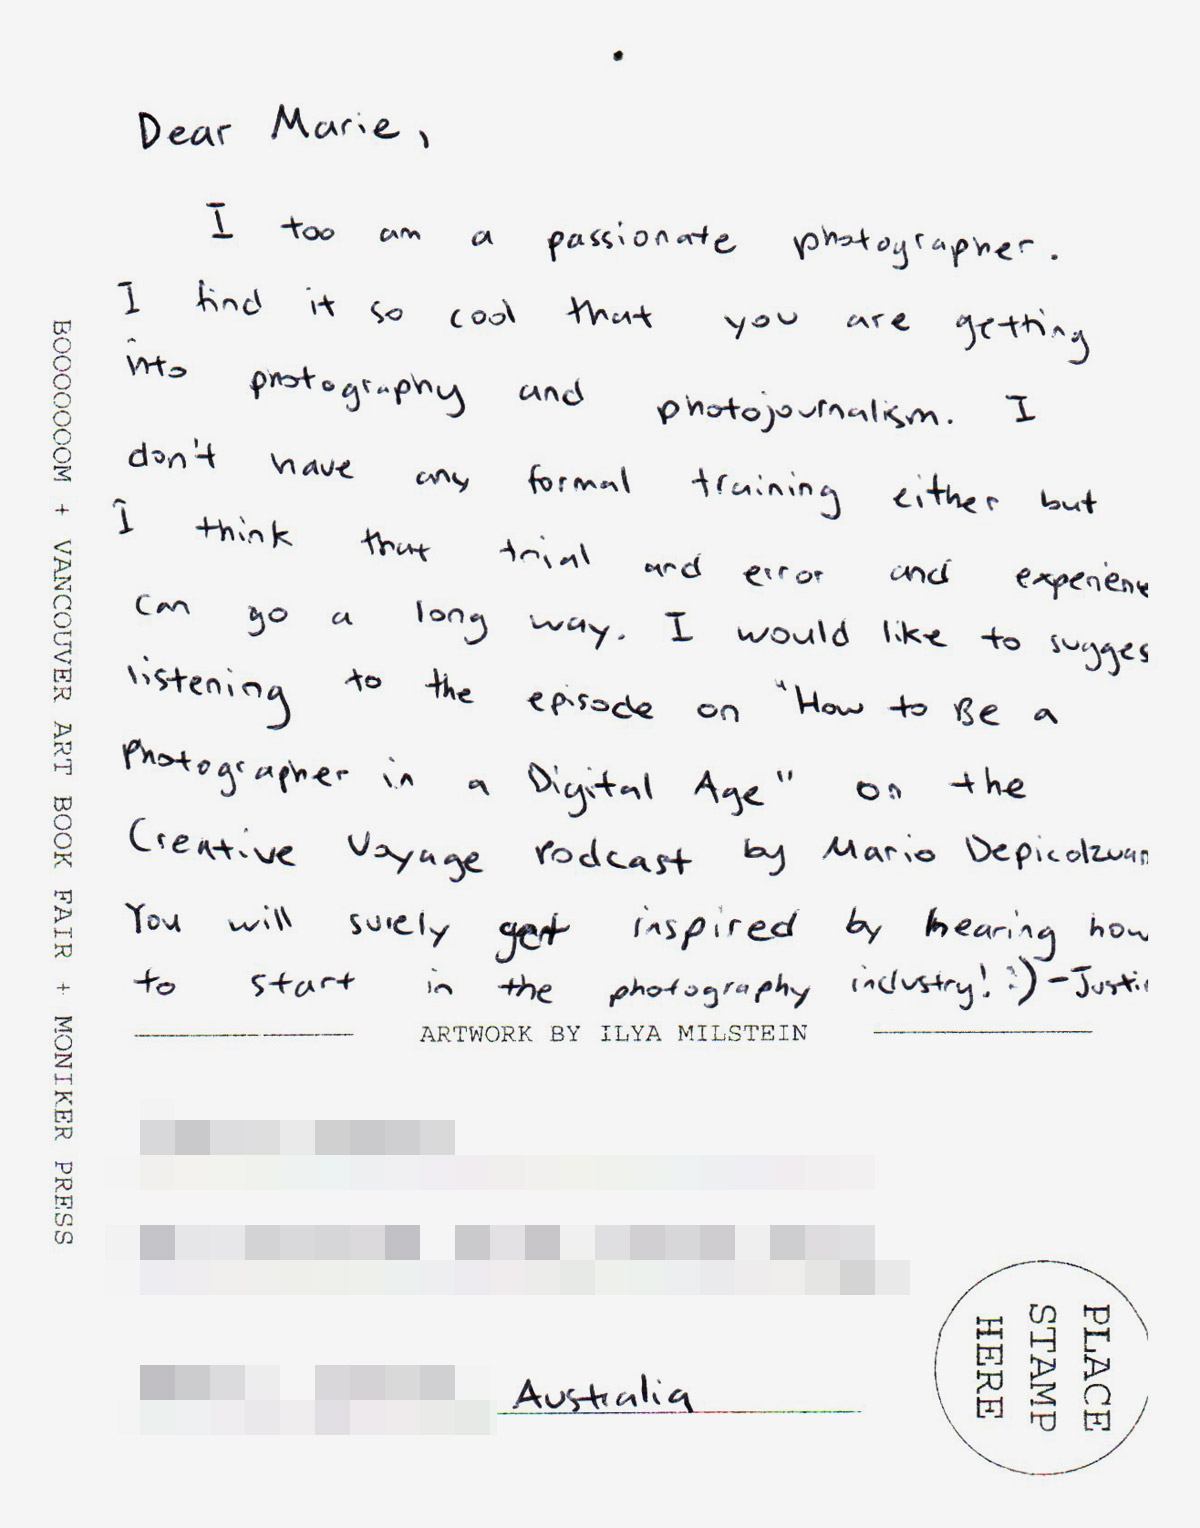 Dear Marie,
I too am a passionate photographer.
I find it so cool that you are getting
into photography and photojournalism. I
don't have any formal training either but
I think that trial and error and experienc
can go a long way. I would like to sugges
listening to the episode on "How to Be a
Photographer in a Digital Age" on the
Creative Voyage Podcast by Mario Depicolzuan
You will surely get inspired by hearing how
to start in the photography industry! :) -Justin
ARTWORK BY ILYA MILSTEIN
BOOOOOOOM + VANCOUVER ART BOOK FAIR + MONIKER PRESS
Australia
PLACE
STAMP
HERE